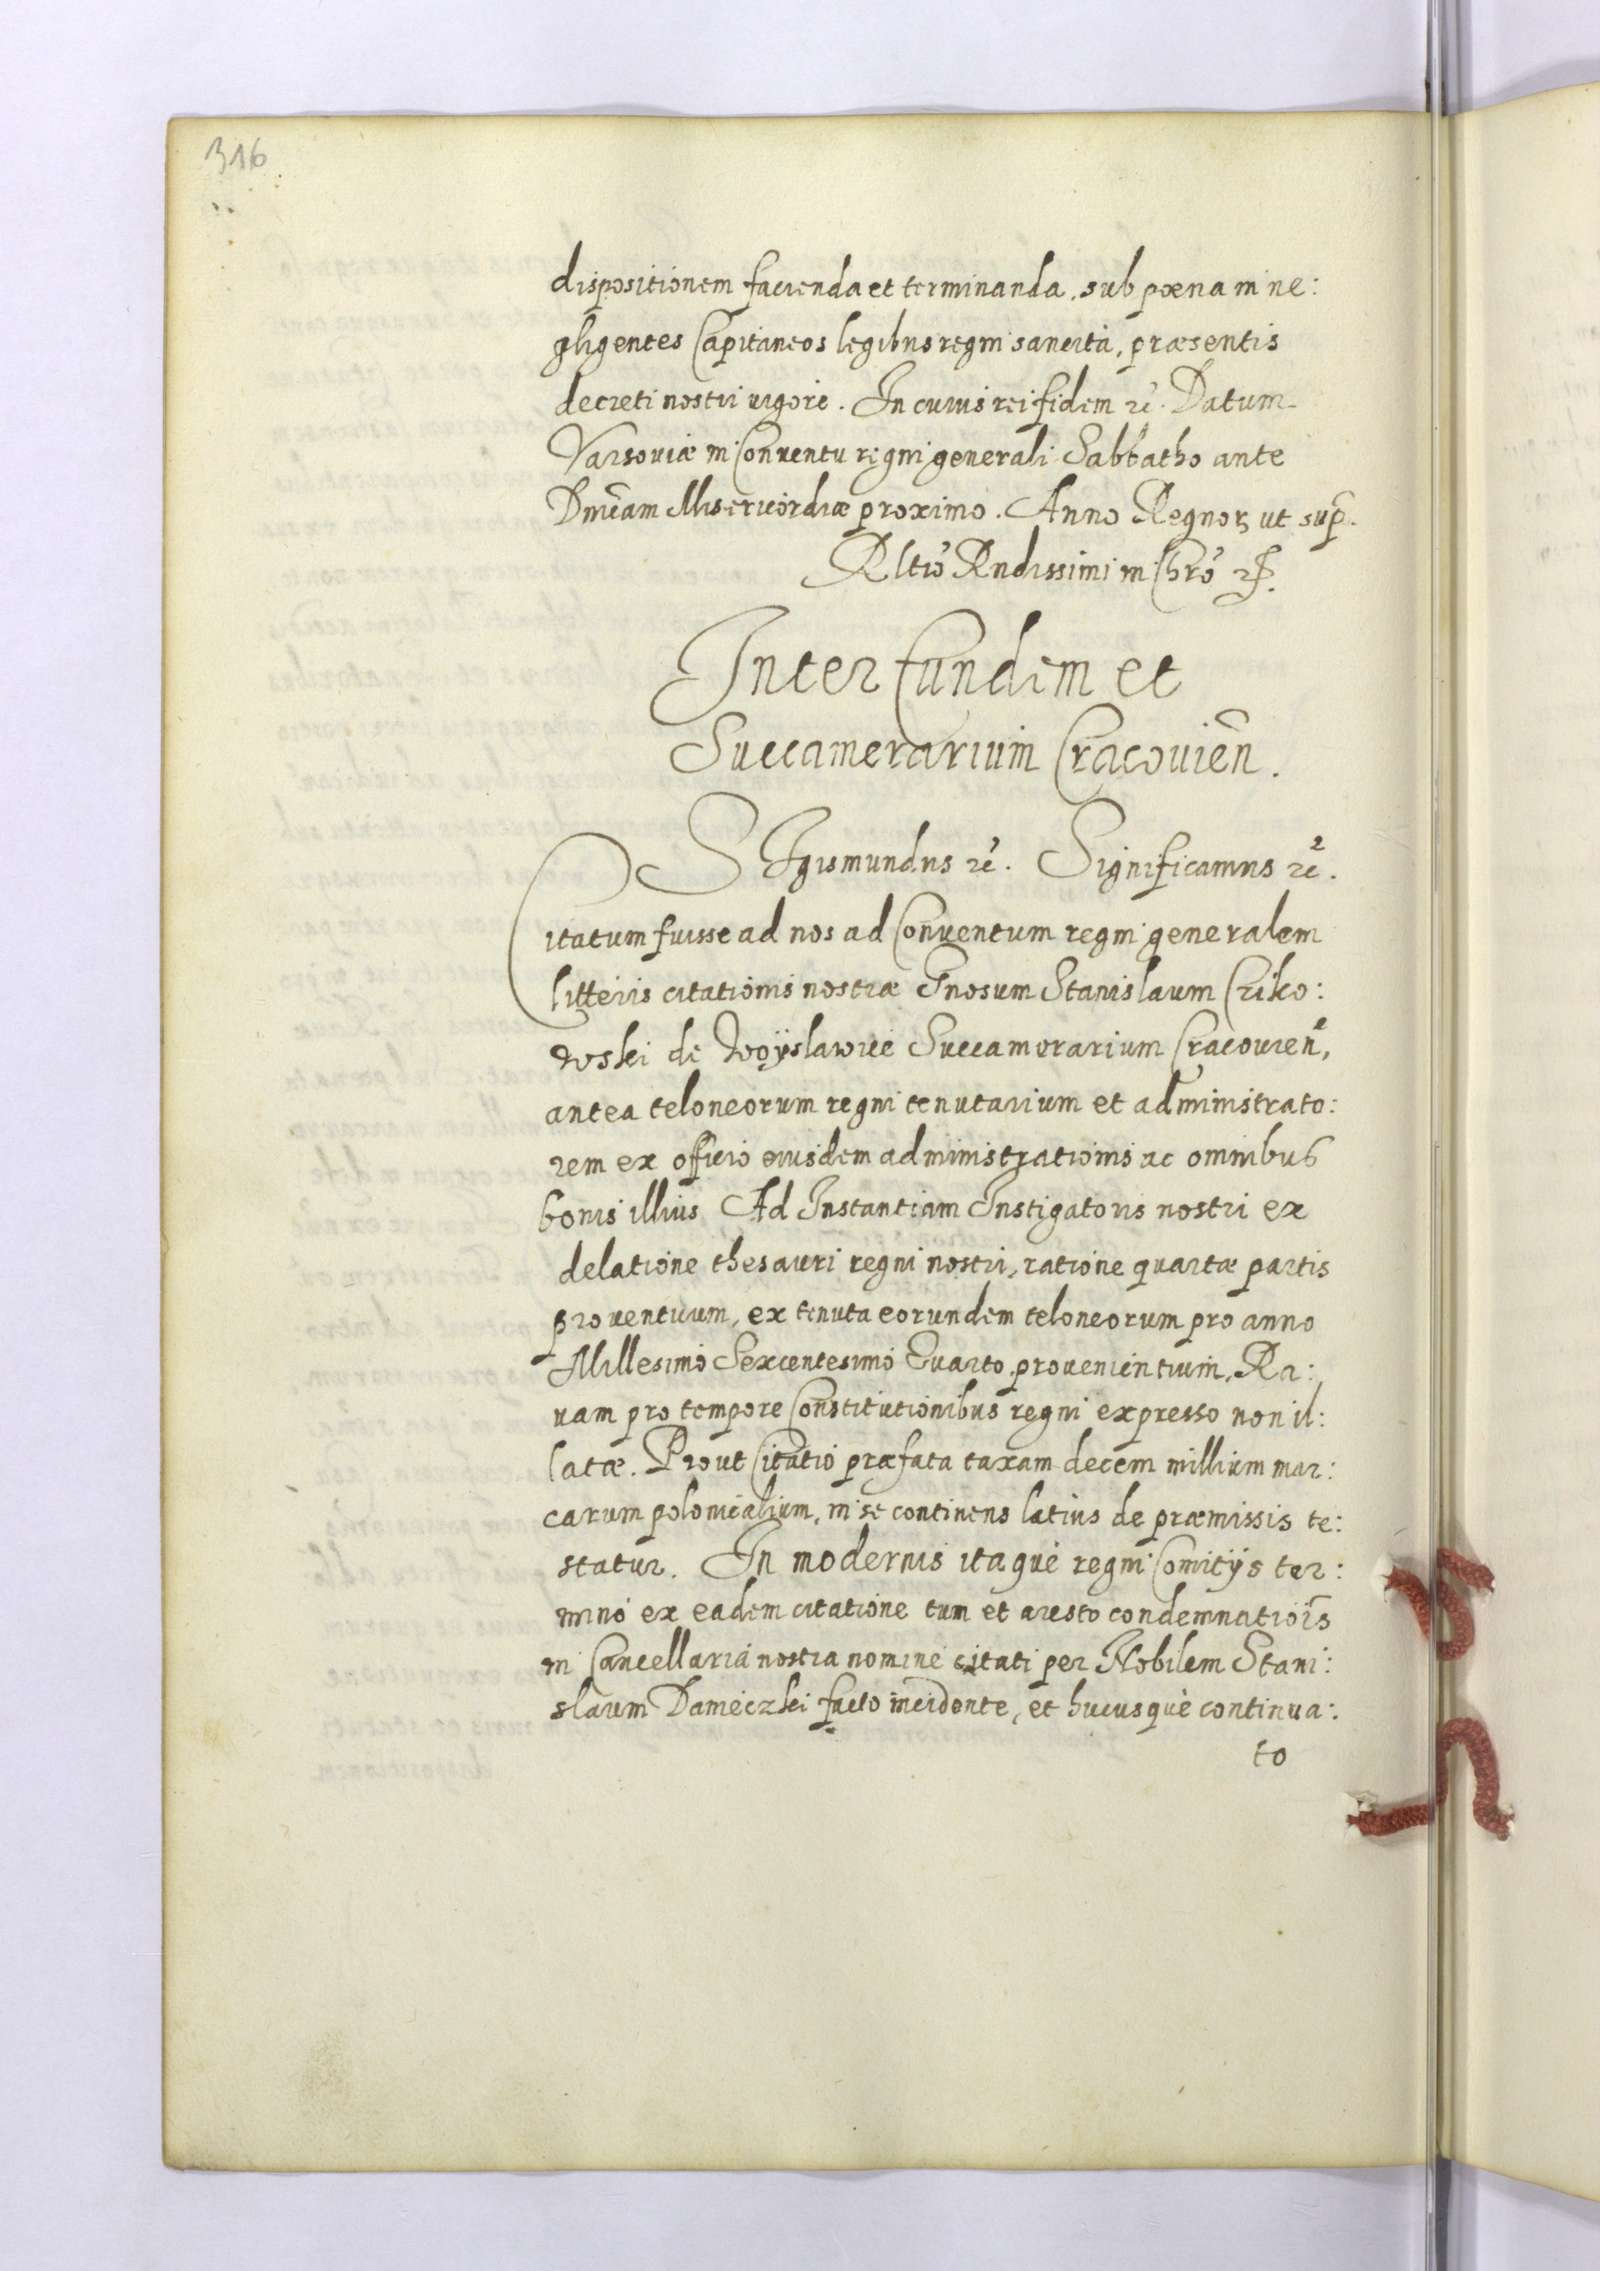 316
dispositionem facienda et terminanda, sub pœna in ne:
gligentes Capitaneos legibus regni sancita, præsentis
decreti nostri vigore. In cuius rei fidem &c. Datum
Varsoviæ in Conventu regni generali Sabbatho ante
Dnicam Misericordiæ proximo. Anno Regnor. ut sup.
Rltio Rndissimi in Chro &c.
Inter Eundem et
Succamerarium Cracovien̄.
SIgismundus &c. Significamus &c.
Citatum fuisse ad nos ad Conventum regni generalem
litteris citationis nostræ Gnosum Stanislaum Criko:
wski de Woÿslawice Succamerarium Cracovien̄,
antea teloneorum regni tenutarium et administrato:
rem ex officio eiusdem administrationis ac omnibus
bonis illius Ad Instantiam Instigatoris nostri ex
delatione thesauri regni nostri, ratione quartæ partis
proventuum, ex tenuta eorundem teloneorum pro anno
Millesimo Sexcentesimo Quarto, provenientium, Ra:
vam pro tempore Constitutionibus regni expresso non il:
latæ. Prout Citatio præfata taxam decem millium mar:
carum polonicalium, in se continens latius de præmissis te:
statur. In modernis itaquè regni Comitÿs ter:
mino ex eadem citatione tum et aresto condemnatiois
in Cancellaria nostra nomine citati per Nobilem Stani:
slaum Dameczki facto incidente, et hucusquè continua:
to